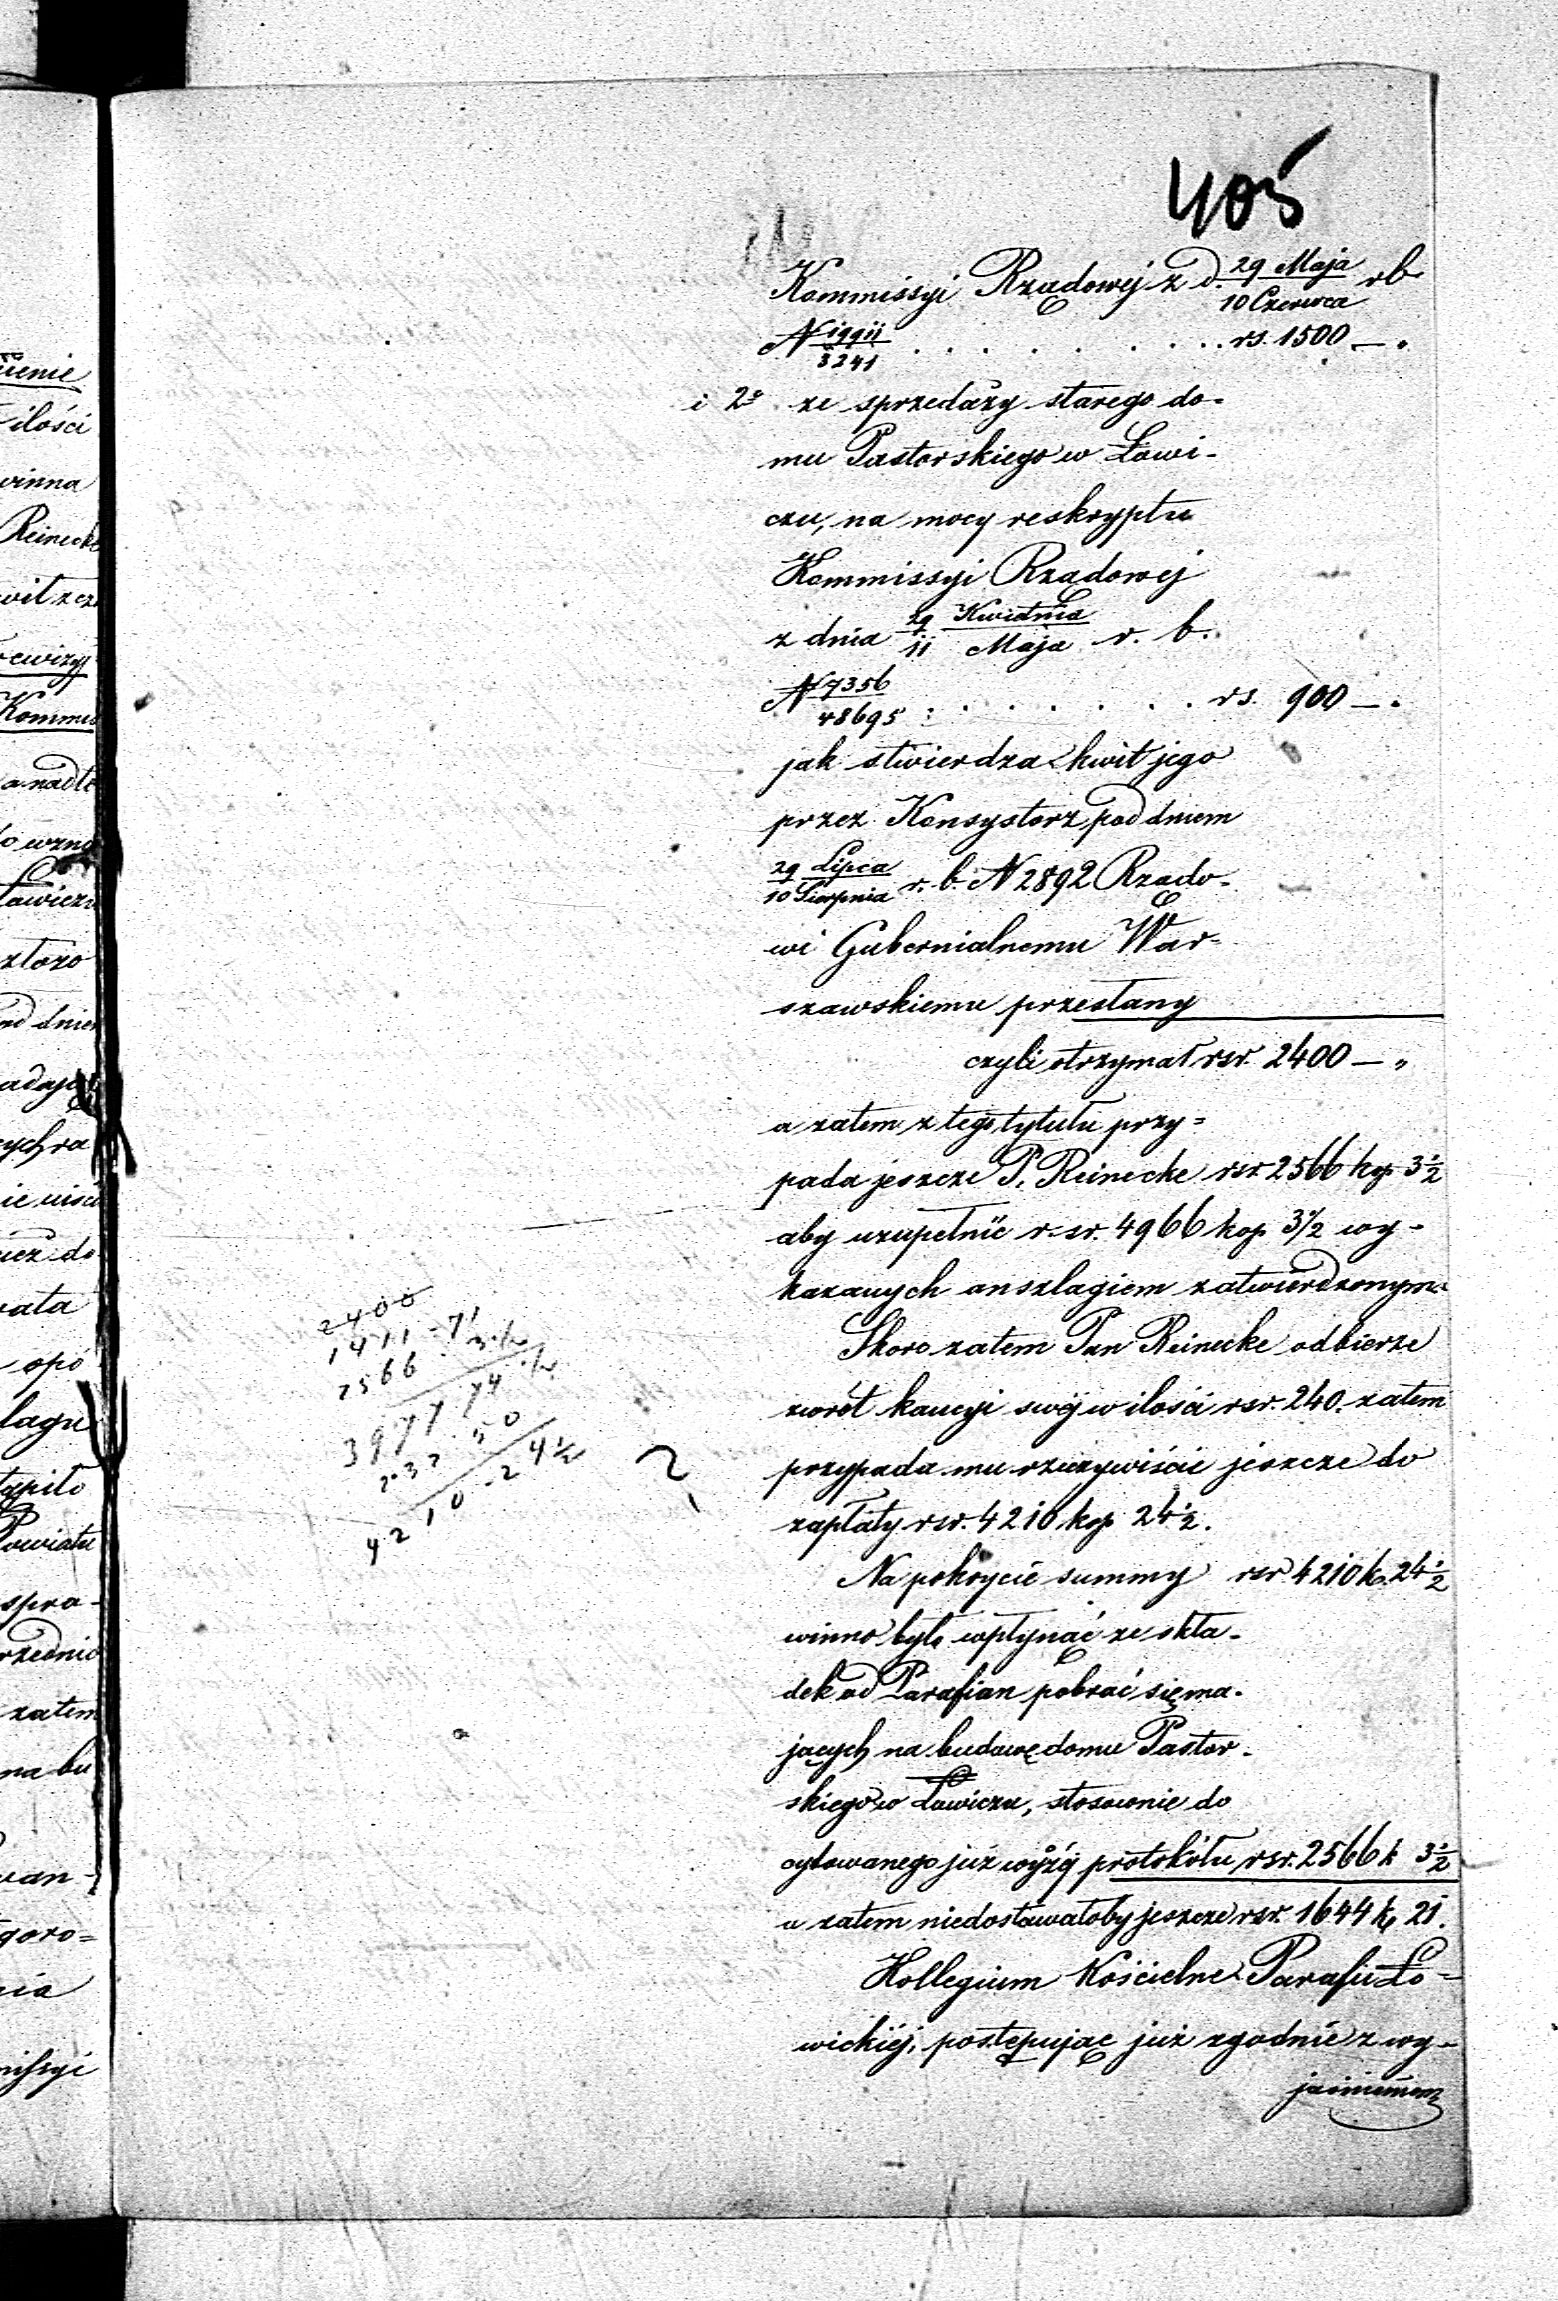 405
Kommissyi Rządowej z d. 29 Maja / 10 Czerwca rb
N 19911 / 3241 . . . . . . . . . rs. 1500 — „
i 2o ze sprzedaży starego do-
mu Pastorskiego w Łowi-
czu, na mocy reskryptu
Kommissyi Rządowej
z dnia 29 Kwietnia / 11 Maja r. b.
N 7356 / 48695 : . . . . . . rs. 900 — „
jak stwierdza kwit jego
przez Konsystorz pod dniem
29 Lipca / 10 Sierpnia r. b. N 2892 Rządo-
wi Gubernialnemu War-
szawskiemu przesłany
czyli otrzymał rsr. 2400 — „
a zatem z tego tytułu przy=
pada jeszcze P. Reinecke rsr. 2566 kop 3 1/2
aby uzupełnić r. sr. 4966 kop 3 1/2 wy-
kazanych anszlagiem zatwierdzonym.
Skoro zatem Pan Reinecke odbierze
zwrót kaucyi swéj w ilości rsr. 240. zatem
przypada mu rzeczywiście jeszcze do
zapłaty rsr. 4210 kop 24 1/2.
Na pokrycie summy rsr 4210 k. 24 1/2
winno było wpłynąć ze skła-
dek od Parafian pobrać się ma-
jących na budowę domu Pastor-
skiego w Łowiczu, stosownie do
cytowanego już wyżéj protokółu rsr. 2566 k 3 1/2
a zatem niedostawałoby jeszcze rsr. 1644 k. 21.
Kollegium Kościelne Parafii Ło=
wickiéj, postępując już zgodnie z wy-
jaśnieniem
2400
1411 - 71
2566 3 1/2
3977 74 1/2
50
4210 - 24 1/2
ilości
winna
Reinecke
Kommis
dniem
opo
lagu
Powiatu
spra-
zatem
na bu